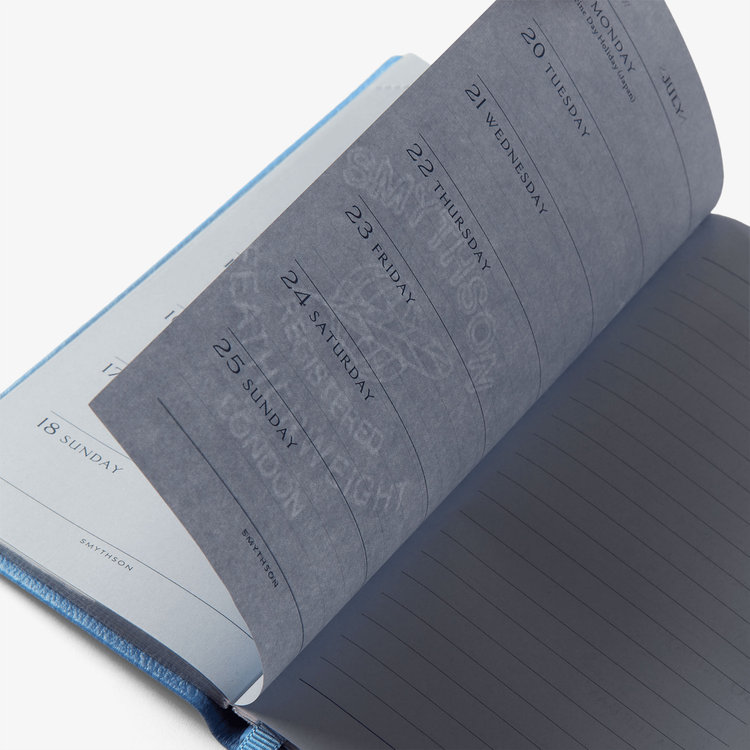 JULY
MONDAY
ine Day Holiday (Japan)
20 TUESDAY
21 WEDNESDAY
22 THURSDAY
23 FRIDAY
24 SATURDAY
25 SUNDAY
SMYTHSON
SMYTHSON
REGISTERED
FEATHERWEIGHT
LONDON
17
18 SUNDAY
SMYTHSON